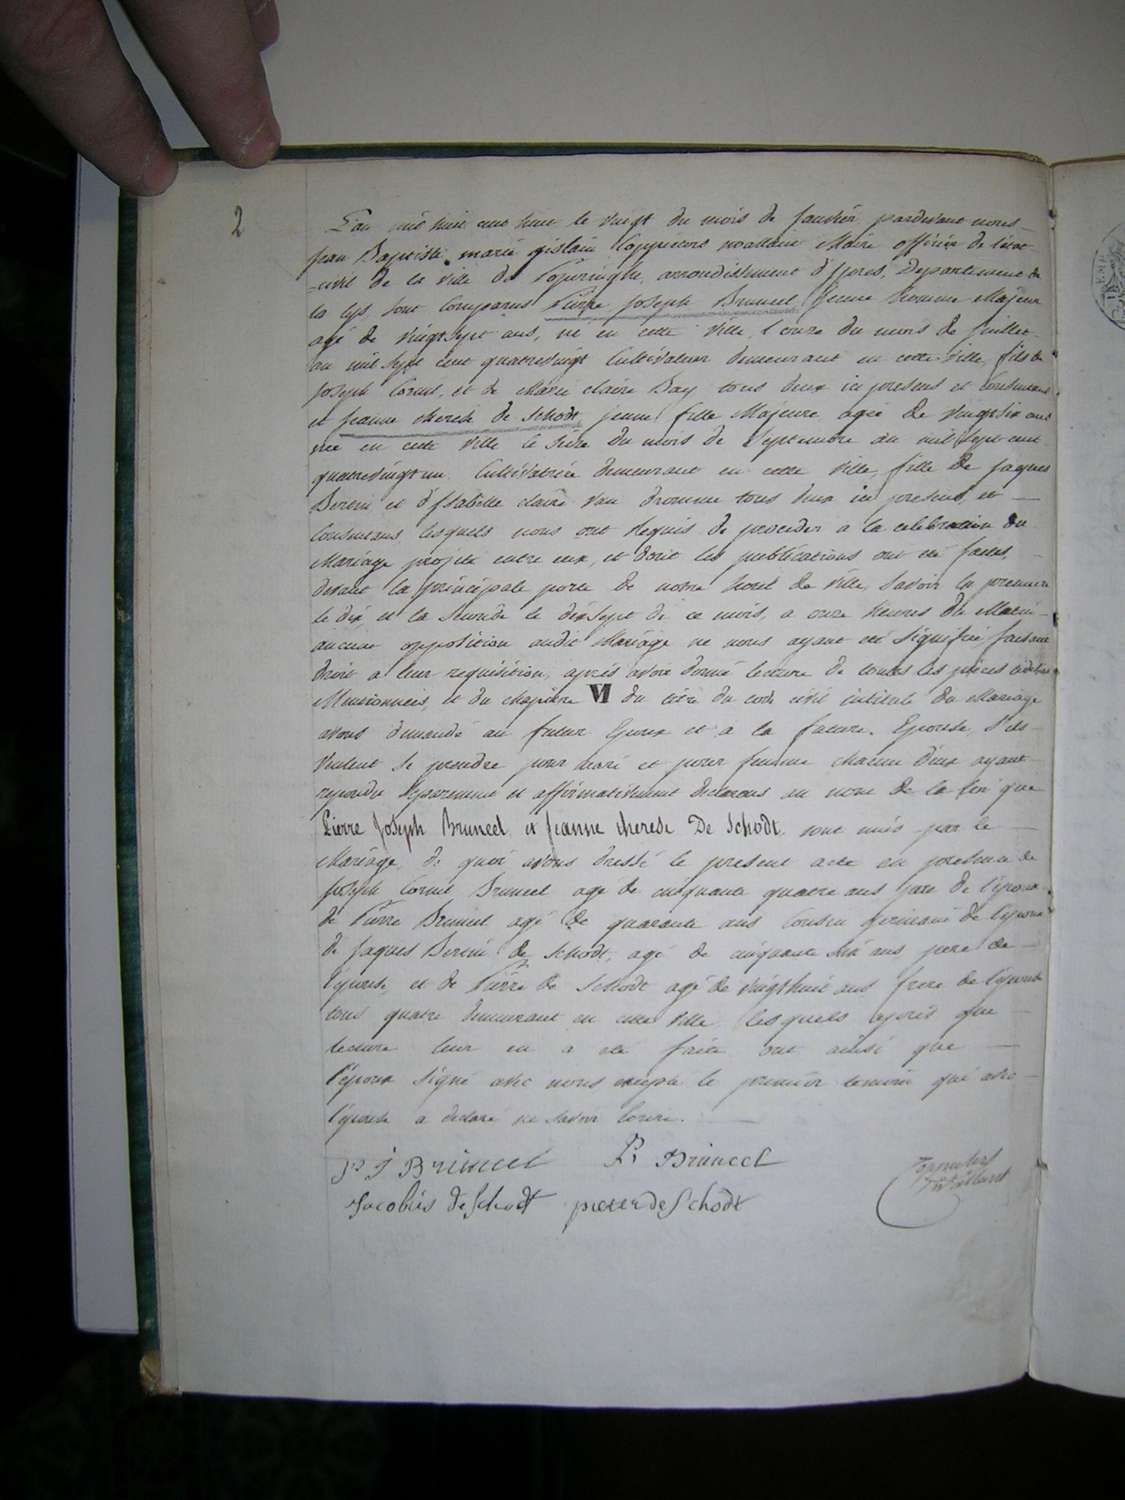 2
L'an mil huit cent huit le vingt du mois de Janvier pardevant nous
Jean Baptiste marie gislain Coppieters wallant Maire officier de l'état
civil de la ville de Poperinghe, arrondissement d'Ypres, Departement de
la Lys, sont Comparus Pierre Joseph Bruneel Jeune homme Majeur
agé de vingtsept ans, né en cette ville l'onze du mois de Juillet
an mil sept cent quatrevingt Cultivateur demeurant en cette ville, fils de
Joseph Cornil, et de Marie claire Bay tous deux ici presens et Consentans
et Jeanne therese de Schodt jeune fille Majeure agée de vingtsix ans
née en cette ville le seize du mois de Septembre an mil Sept cent
quatrevingt un Cultivatrice demeurant en cette ville, fille de Jaques
Berein et d'Isabelle claire Van dromme tous deux ici presens et
Consentans lesquels nous ont Requis de proceder a la celebration du
Mariage projeté entre eux, et dont les publications ont été faites
devant la principale porte de notre hotel de ville, Savoir la premiere
le dix et la seconde le dixsept de ce mois, a onze heures du Matin
aucune opposition audit Mariage ne nous ayant été signifiée faisant
droit a leur requisition, après avoir donné lecture de toutes les pièces cidessus
Mentionnées, et du chapitre VI du titre du code civil intitulé du Mariage
avons demandé au futur Epoux et a la future Epouse, s'ils
veulent se prendre pour mari et pour femme chacun d'eux ayant
repondu separement et affirmativement declarons au nom de la loi que
Pierre Joseph Bruneel et Jeanne therese De Schodt sont unis par le
Mariage, de quoi avons dressé le present acte en presence de
Joseph Cornil Bruneel agé de cinquante quatre ans pere de l'époux
de Pierre Bruneel agé de quarante ans Cousin germain de l'époux
de Jaques Berein de Schodt, agé de cinquante six ans, pere de
l'épouse, et de Pierre de Schodt agé de vingthuit ans frere de l'épouse
tous quatre demeurant en cette ville lesquels après que
lecture leur en a été faite ont ainsi que
l'époux signé avec nous excepté le premier temoin qui avec
l'épouse a declaré ne savoir écrire.
P. J Bruneel P. Bruneel
Jacobus de Schodt pieter de Schodt